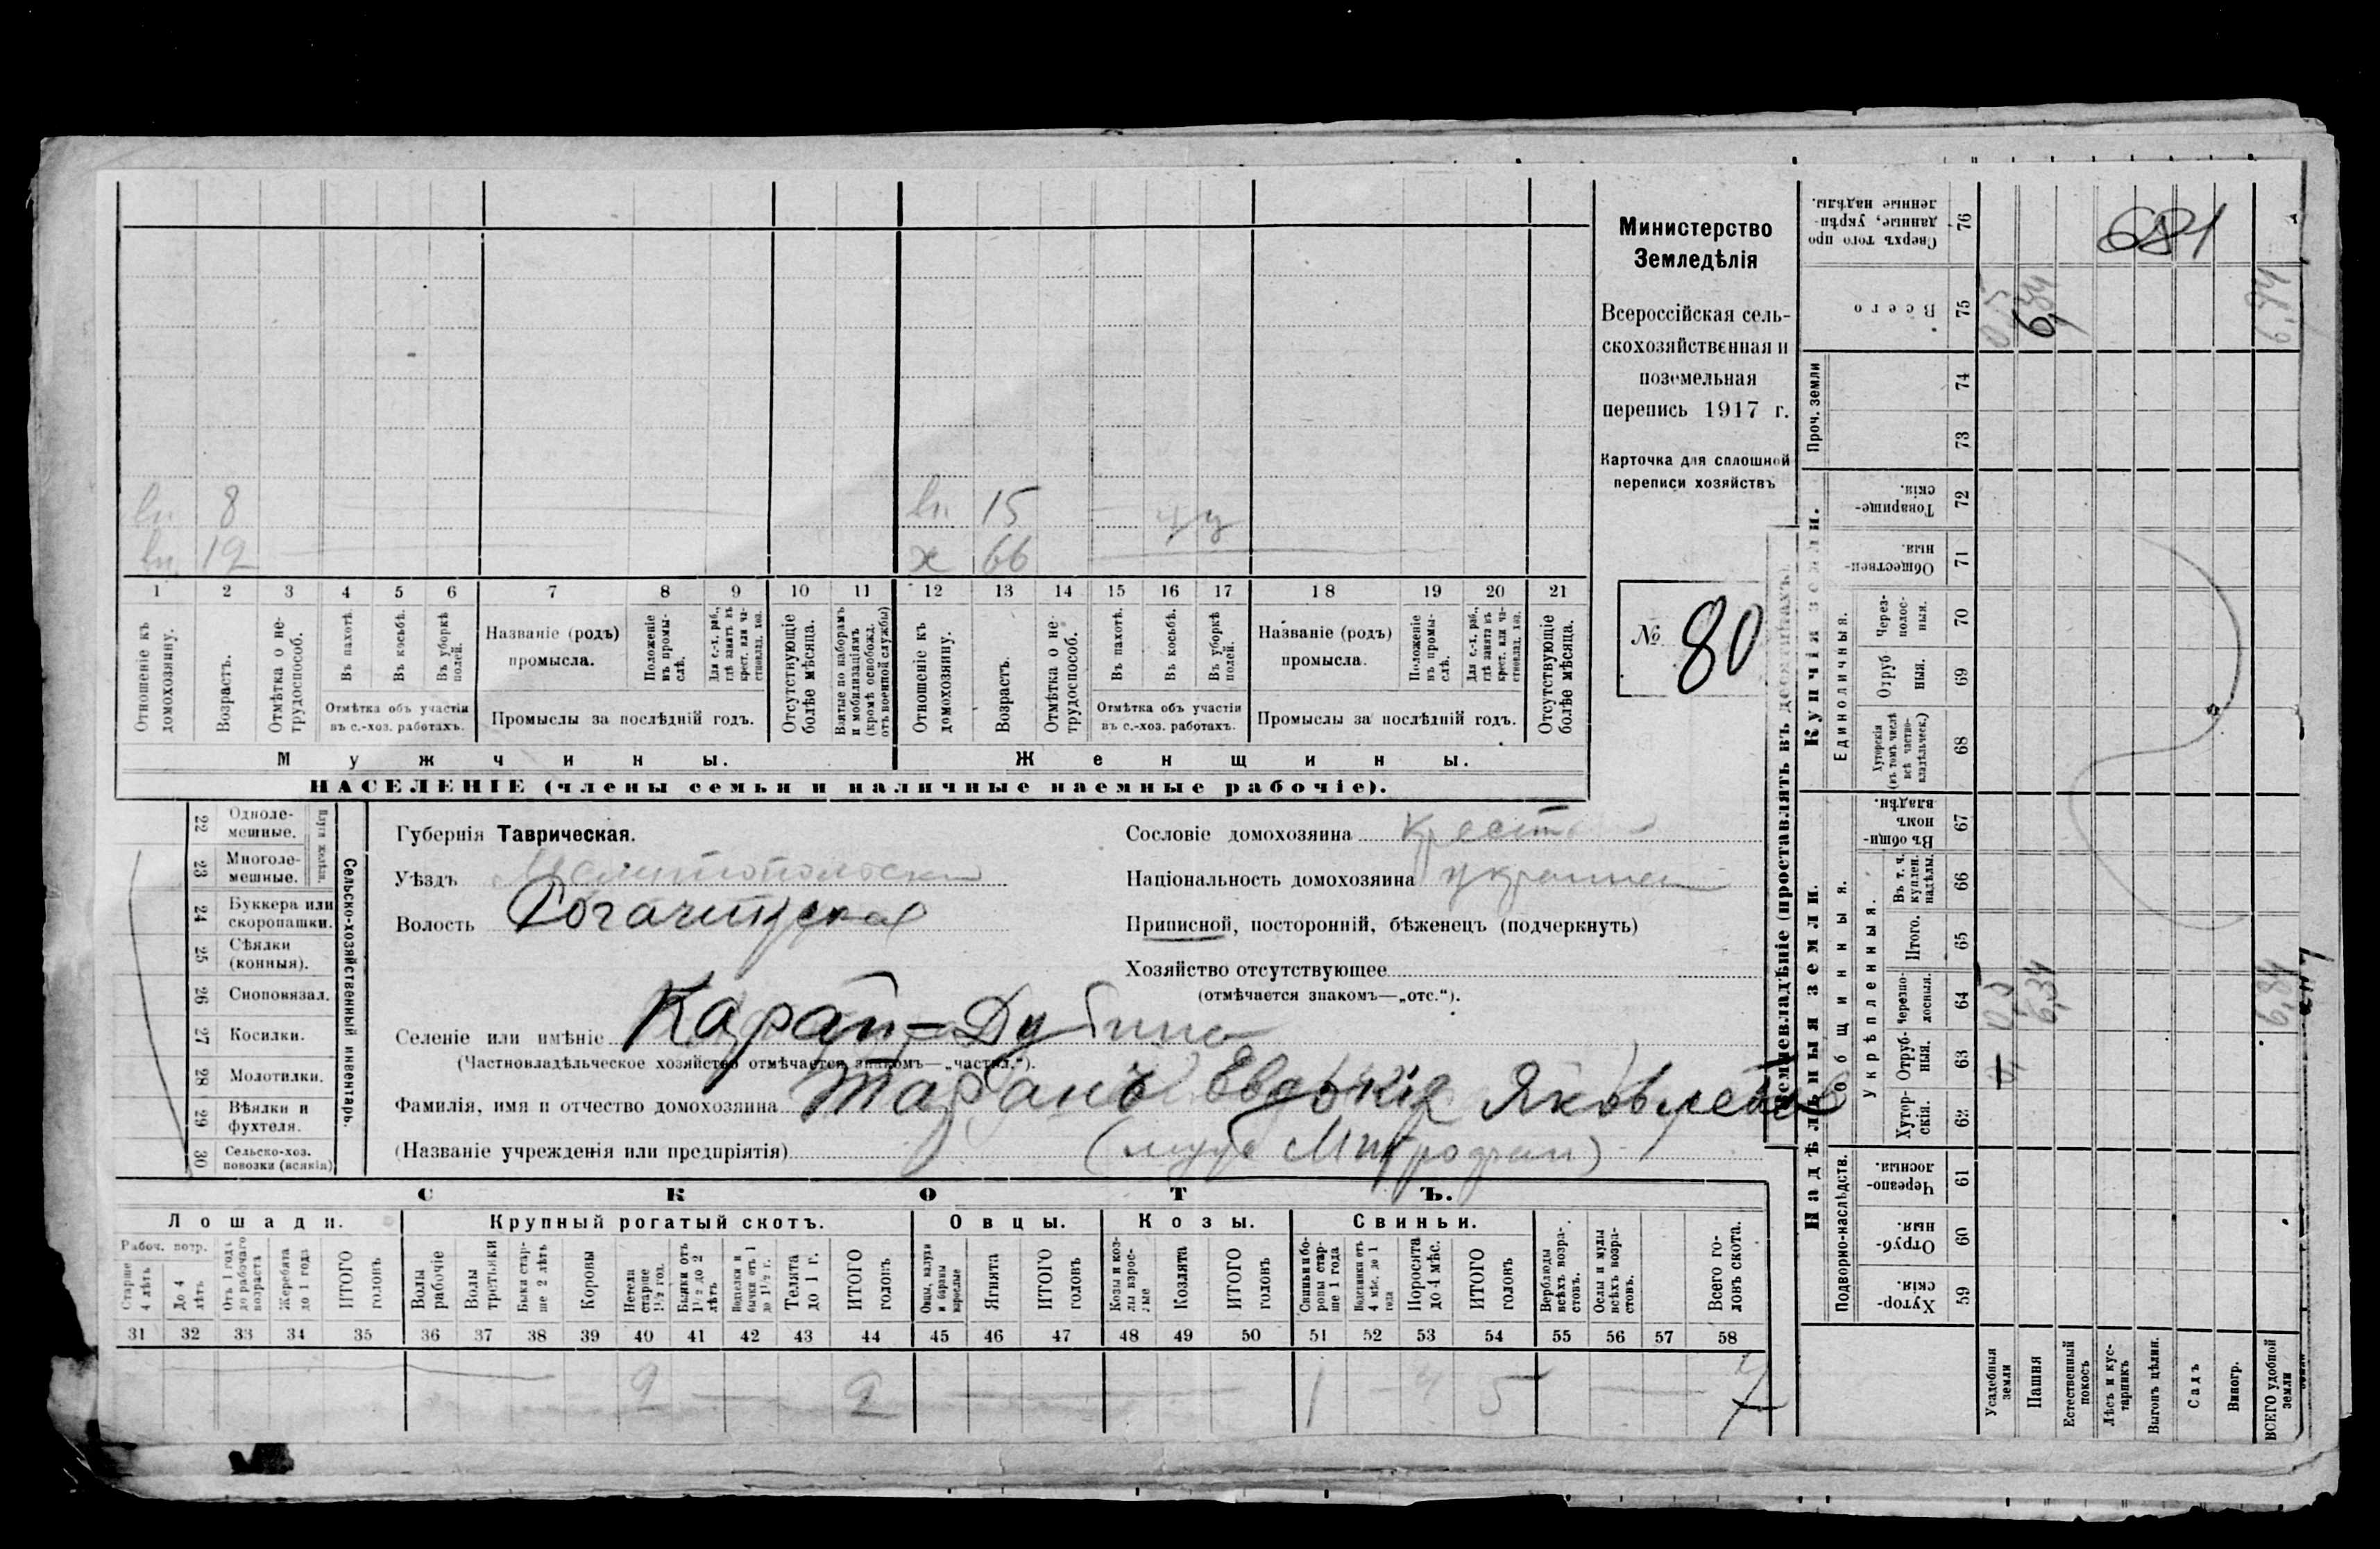 вн. 8 вн. 15
вн. 12 х 66
1 2 3 4 5 6 7 8 9 10 11 12 13 14 15 16 17 18 19 20 21
Отношеніе къ домохозяину.
Возрастъ.
Отмѣтка о не-трудоспособ.
Въ пахотѣ.
Въ косьбѣ.
Въ уборкѣ полей.
Отмѣтка объ участіи въ с.-хоз. работахъ.
Названіе (родъ) промысла.
Положеніе въ промы-слѣ.
Для с.-х. раб., гдѣ занятъ въ крест. или ча-стновлад. хоз.
Промыслы за послѣдній годъ.
Отсутствующіе болѣе мѣсяца.
Взятые по наборамъ и мобилизаціямъ (кромѣ освобожд. отъ военной службы)
Отношеніе къ домохозяину.
Возрастъ.
Отмѣтка о не-трудоспособ.
Въ пахотѣ.
Въ косьбѣ.
Въ уборкѣ полей.
Отмѣтка объ участіи въ с.-хоз. работахъ.
Названіе (родъ) промысла.
Положеніе въ промы-слѣ.
Для с.-х. раб., гдѣ занята въ крест. или ча-стновлад. хоз.
Промыслы за послѣдній годъ.
Отсутствующіе болѣе мѣсяца.
Мужчины. Женщины.
НАСЕЛЕНІЕ (члены семьи и наличные наемные рабочіе).
Министерство
Земледѣлія
Всероссійская сель-
скохозяйственная и
поземельная
перепись 1917 г.
Карточка для сплошной
переписи хозяйствъ
№ 80
22 Одноле-мешные.
23 Многоле-мешные.
Плуги желѣзн.
24 Буккера или скоропашки.
25 Сѣялки (конныя).
26 Сноповязал.
27 Косилки.
28 Молотилки.
29 Вѣялки и фухтеля.
30 Сельско-хоз. повозки (всякія)
Сельско-хозяйственный инвентарь.
Губернія Таврическая.
Уѣздъ Мелитопольскій
Волость Рогачицская
Селеніе или имѣніе Карай-Дубина
(Частновладѣльческое хозяйство отмѣчается знакомъ—„частвл.“).
Фамилія, имя и отчество домохозяина Таранъ Евдокія Яковлевна
(Названіе учрежденія или предпріятія) (мужъ Митрофан)
Сословіе домохозяина крест
Національность домохозяина украинец
Приписной, посторонній, бѣженецъ (подчеркнуть)
Хозяйство отсутствующее
(отмѣчается знакомъ—„отс.“).
СКОТЪ.
Лошади. Крупный рогатый скотъ. Овцы. Козы. Свиньи.
Рабоч. возр.
Старше 4 лѣтъ
До 4 лѣтъ
Отъ 1 года до рабочаго возраста
Жеребята до 1 года
ИТОГО головъ
Волы рабочіе
Волы третьяки
Быки стар-ше 2 лѣтъ
Коровы
Нетели старше 1½ год.
Бычки отъ 1½ до 2 лѣтъ
Подтелки и бычки отъ 1 до 1½ г.
Телята до 1 г.
ИТОГО головъ
Овцы, валухи и бараны взрослые
Ягнята
ИТОГО головъ
Козы и коз-лы взрос-лые
Козлята
ИТОГО головъ
Свиньи и бо-ровы стар-ше 1 года
Подсвинки отъ 4 мѣс. до 1 года
Поросята до 4 мѣс.
ИТОГО головъ
Верблюды всѣхъ возра-стовъ.
Ослы и мулы всѣхъ возра-стовъ.
Всего го-ловъ скота.
31 32 33 34 35 36 37 38 39 40 41 42 43 44 45 46 47 48 49 50 51 52 53 54 55 56 57 58
2 2 1 4 5 7
Землевладѣніе (проставлять въ десятинахъ).
Надѣльныя земли. Купчія земли. Проч. земли
Подворно-наслѣдств.
Общинныя.
Укрѣпленныя.
Единоличныя.
Хутор-скія. 59
Отруб-ныя. 60
Черезпо-лосныя. 61
Хутор-скія. 62
Отруб-ныя. 63
Черезпо-лосныя. 64
Итого. 65
Въ т. ч. куплен. надѣлы. 66
Въ общи-нномъ владѣн. 67
Хуторскія (въ томъ числѣ всѣ частно-владѣльческ.) 68
Отруб ныя. 69
Через-полос-ныя. 70
Обществен-ныя. 71
Товарище-скія. 72
73
74
Всего 75
Сверхъ того про данные, укрѣп-ленные надѣлы. 76
681
Усадебныя земли 0,5 0,5
Пашня 6,34 6,34
Естественный покосъ
Лѣсъ и кус-тарникъ
Выгонъ цѣлин.
Садъ
Виногр.
ВСЕГО удобной земли 6,84 6,84